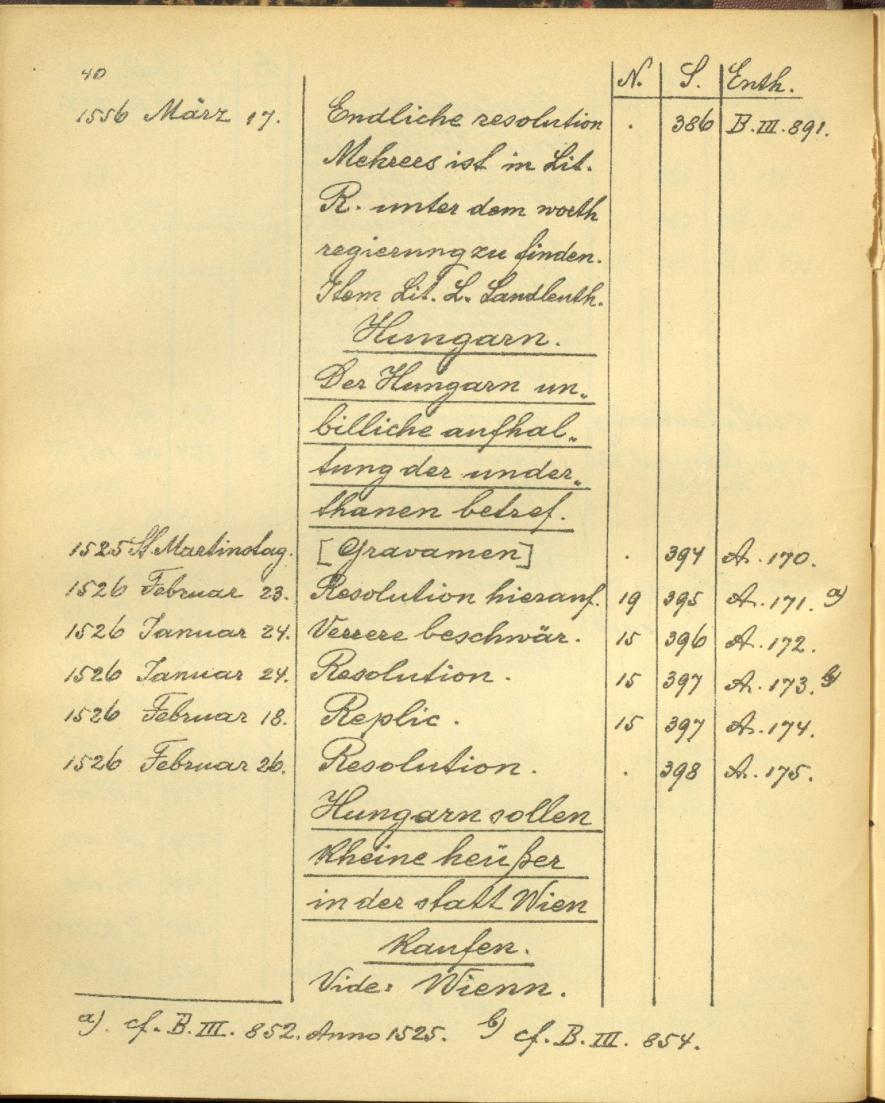 40
N. S. Enth.
1556 März 17. Endliche resolution . 386 B.III.891.
Mehrers ist in Lit.
R. unter dem worth
regierung zu finden.
Item Lit. L. Landleuth.
Hungarn.
Der Hungarn un„
billiche aufhal„
tung der under„
thanen betref.
1525 St Martinstag. [Gravamen] . 394 A. 170.
1526 Februar 23. Resolution hierauf. 19 395 A. 171. a)
1526 Januar 24. Verrere beschwär. 15 396 A. 172.
1526 Januar 24. Resolution. 15 397 A. 173. b)
1526 Februar 18. Replic. 15 397 A. 174.
1526 Februar 26. Resolution. . 398 A. 175.
Hungarn sollen
kheine heüßer
in der statt Wien
kaufen.
Vide: Wienn.
a). cf. B. III. 852. Anno 1525. b) cf. B. III. 854.